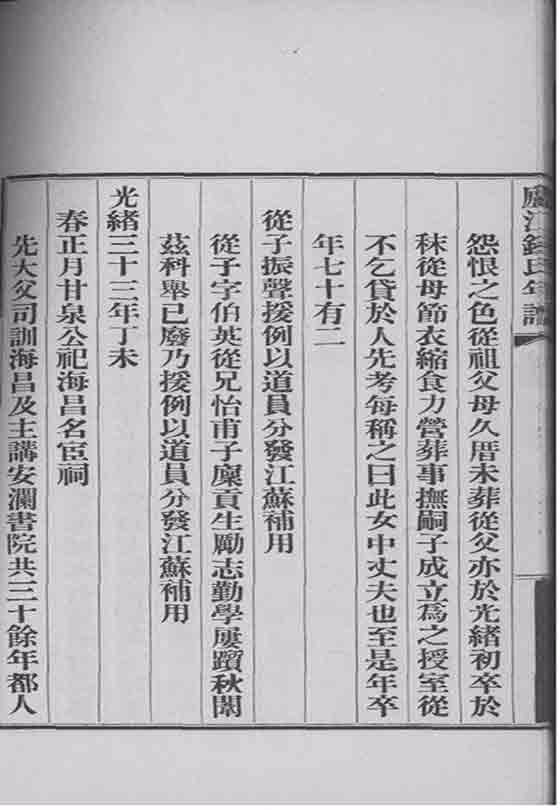 廬江錢氏年譜
怨恨之色從祖父母久厝未葬從父亦於光緒初卒於
秣從母節衣縮食力營葬事撫嗣子成立為之授室從
不乞貸於人先考每稱之曰此女中丈夫也至是年卒
年七十有二
從子振聲援例以道員分發江蘇補用
從子字伯英從兄怡甫子廩貢生勵志勤學屢躓秋闈
茲科舉已廢乃援例以道員分發江蘇補用
光緒三十三年丁未
春正月甘泉公祀海昌名宦祠
先大父司訓海昌及主講安瀾書院共三十餘年都人